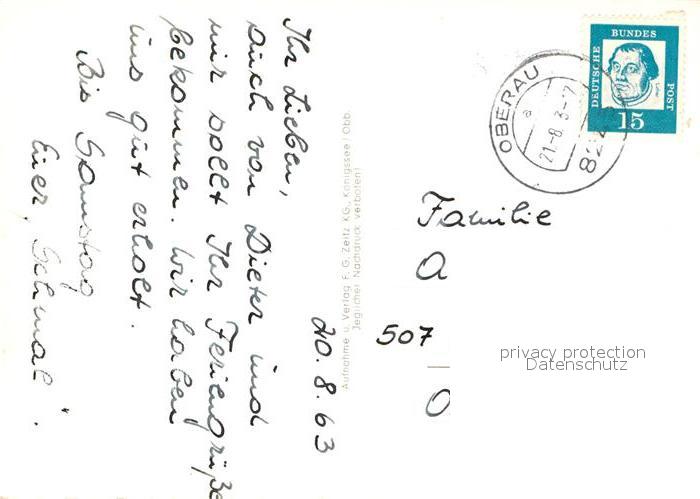 20.8.63
Ihr Lieben,
auch von Dieter und
mir sollt Ihr Feriengrüße
bekommen. Wir haben
uns gut erholt.
Bis Samstag
Euer "Schwal".
Aufnahme u. Verlag F. G. Zeitz KG., Königssee / Obb.
Jeglicher Nachdruck verboten!
OBERAU
a
21-8.63-7
DEUTSCHE
BUNDES
POST
15
Familie
A
507
O
privacy protection
Datenschutz